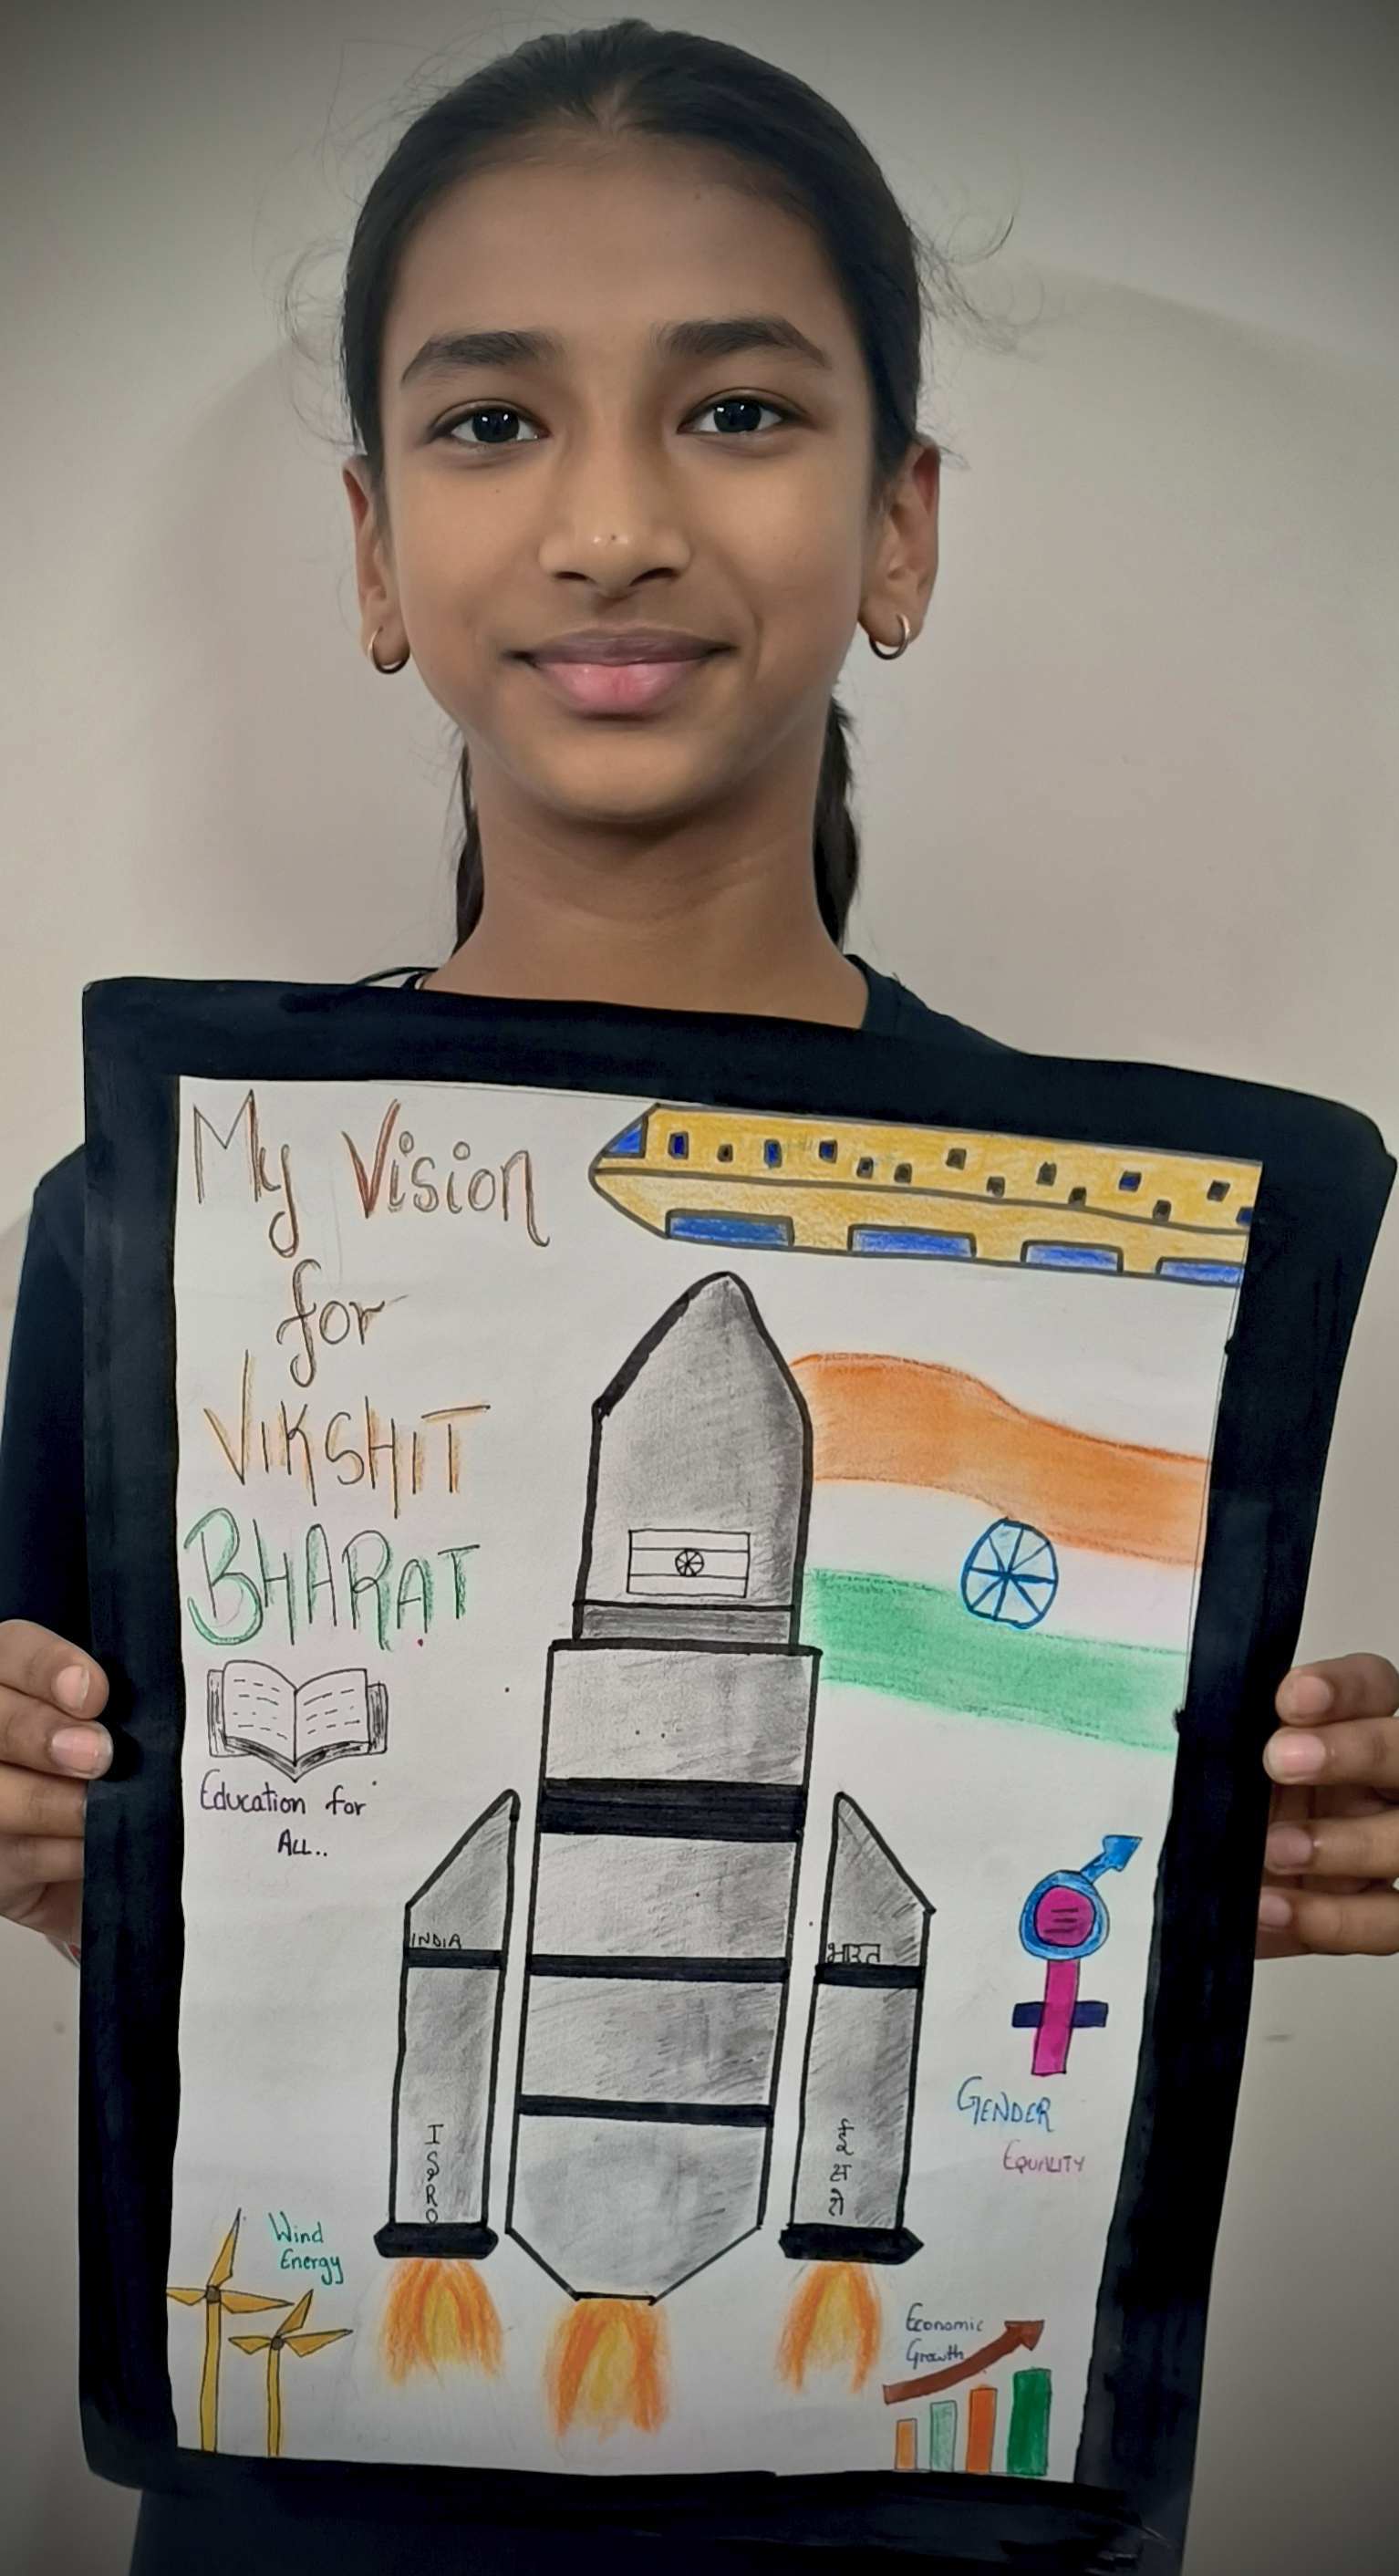 My Vision
for
VIKSHIT
BHARAT
Education for
ALL..
INDIA
भारत
ISRO
इसरो
GENDER
EQUALITY
Wind
Energy
Economic
Growth